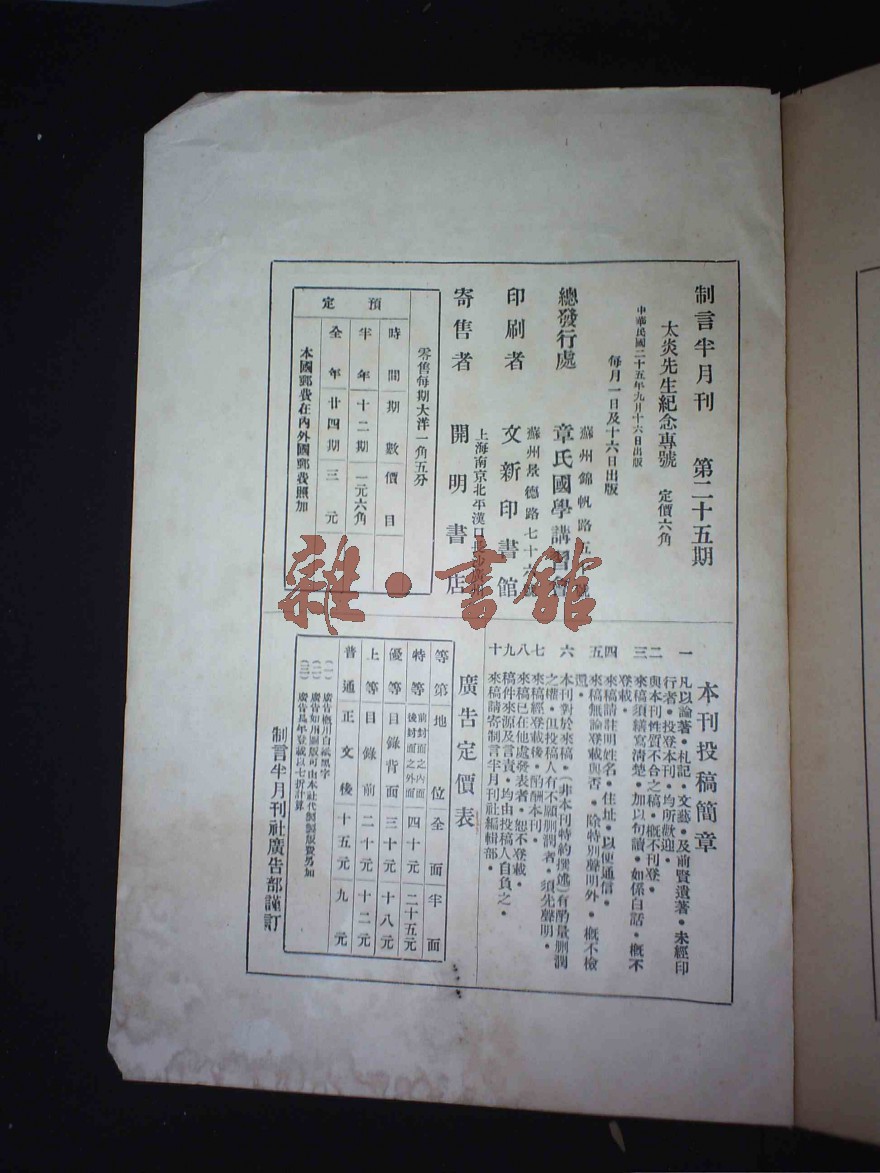 制言半月刊 第二十五期
太炎先生紀念專號 定價六角
中華民國二十五年九月十六日出版
每月一日及十六日出版
總發行處 章氏國學講習會
蘇州錦帆路五十號
印刷者 文新印書館
蘇州景德路七十六號
寄售者 開明書店
上海南京北平漢口長沙廣州
零售每期大洋一角五分
預定
時間 期數 價目
半年 十二期 一元六角
全年 廿四期 三元
本國郵費在內外國郵費照加
本刊投稿簡章
一 凡以論著・札記・文藝・及前賢遺著・未經印
行者・投登本刊・均所歡迎・
二 與本刊性質不合之稿・概不刊登・
三 來稿須繕寫清楚・加以句讀・如係白話・概不
登載・
四 來稿請註明姓名・住址・以便通信・
五 來稿無論登載與否・除特別聲明外・概不檢
還・
六 本刊對於來稿・(非本刊特約撰述)有酌量删潤
之權・但投稿人有不願删潤者・須先聲明・
七 來稿經登載後・酌酬本刊・
八 來稿已在他處發表者・恕不登載・
九 稿件來源及言責・均由投稿人自負之・
十 來稿請寄制言半月刊社編輯部・
廣告定價表
等第 地位 全面 半面
特等 前封面之內面 後封面之外面 四十元 二十五元
優等 目錄背面 三十元 十八元
上等 目錄前 二十元 十二元
普通 正文後 十五元 九元
(一) 廣告概用白紙黑字
(二) 廣告如用圖版可由本社代製製版費另加
(三) 廣告長年登載以七折計算
制言半月刊社廣告部謹訂
雜・書館